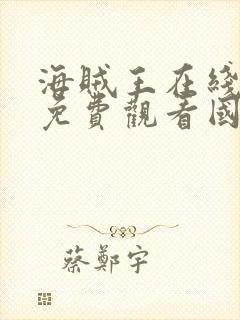 海賊王在綫
免費觀看國
蔡鄭宇